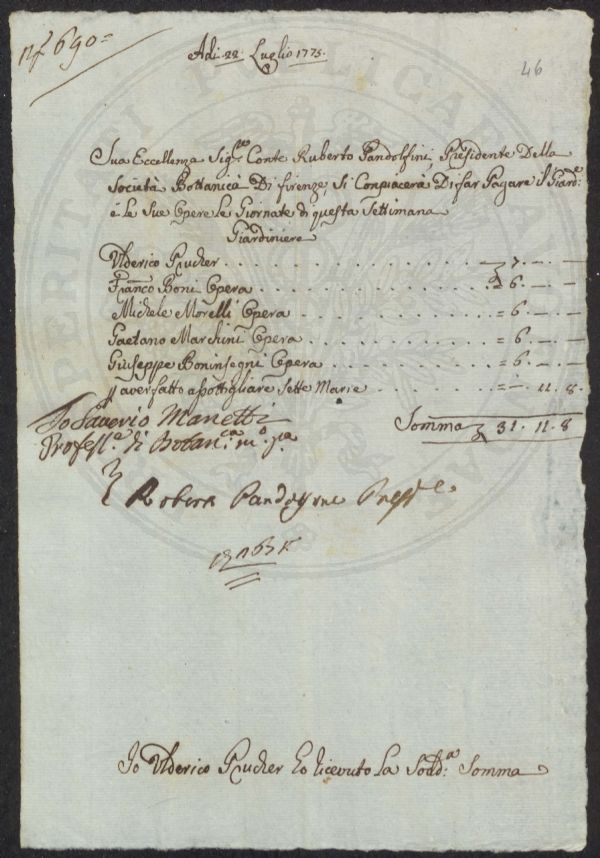 nº 690=
Adi 22 Luglio 1775.
46
Sua Eccellenza Sig:re Conte Ruberto Pandolfini, Presidente Della
Società Bottanica Di firenze, Si Conpiacerà Di far Pagare il Giard:e
è le Sue Opere le Giornate di questa Settimana
Giardiniere
Ulderico Prucher . . . . . . . . . 7. — —
Franco Boni Opera . . . . . . . . . = 6. — —
Michele Morelli Opera . . . . . . . . . = 6. — —
Gaetano Marchini Opera . . . . . . . . . = 6. — —
Giuseppe Boninsegni Opera . . . . . . . . . = 6. — —
p aver fatto asottigliare Sette Marre . . . . . . . . . = — 11. 8.
Somma 31. 11. 8
Io Saverio Manetti
Profess.e di Botan:ca m.o p.a
Pandolfini Press.e
Io Ulderico Prucher ho ricevuto La Sudd:a Somma